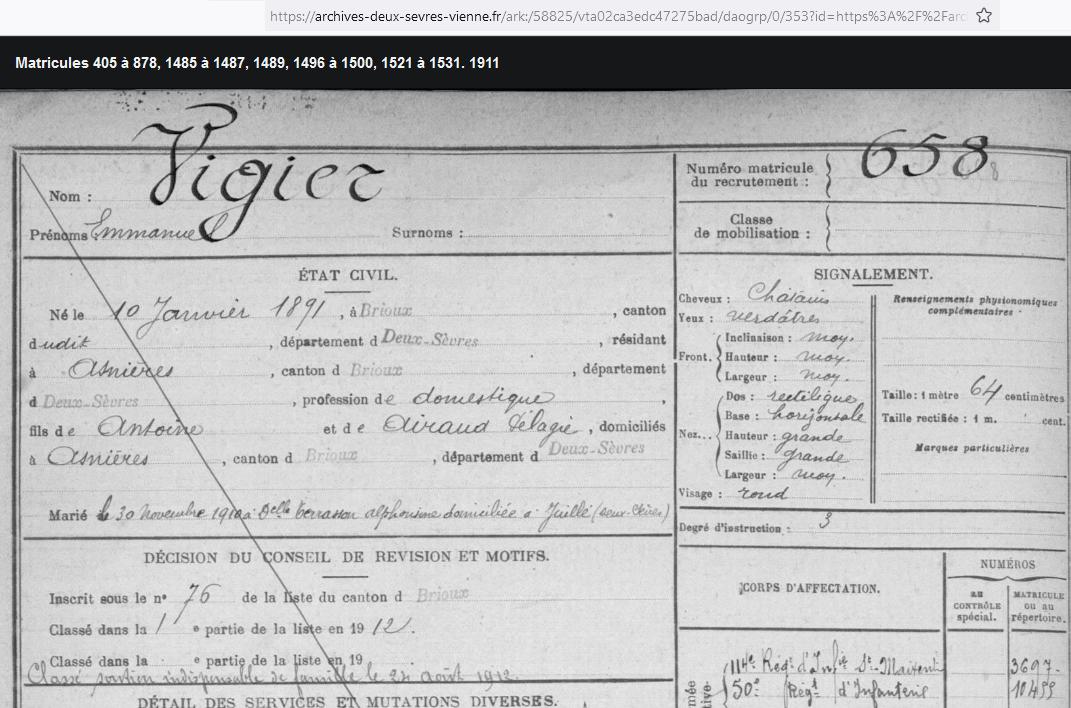 https://archives-deux-sevres-vienne.fr/ark:/58825/vta02ca3edc47275bad/daogrp/0/353?id=https%3A%2F%2Farc
Matricules 405 à 878, 1485 à 1487, 1489, 1496 à 1500, 1521 à 1531. 1911
Nom : Vigier
Prénoms Emmanuel Surnoms :
Numéro matricule du recrutement : 658
Classe de mobilisation :
ÉTAT CIVIL.
Né le 10 Janvier 1891, à Brioux, canton
dudit, département d Deux-Sèvres, résidant
à Asnières, canton d Brioux, département
d Deux-Sèvres, profession de domestique,
fils de Antoine et de Airaud Pélagie, domiciliés
à Asnières, canton d Brioux, département d Deux-Sèvres
Marié le 30 Novembre 1910 à Delle Terrasson alphonsine domiciliée à Juillé (Deux-Sèvres)
SIGNALEMENT.
Cheveux : Châtains
Yeux : verdâtres
Front. Inclinaison : moy.
Hauteur : moy.
Largeur : moy.
Nez... Dos : rectiligne
Base : horizontale
Hauteur : grande
Saillie : grande
Largeur : moy.
Visage : rond
Renseignements physionomiques complémentaires :
Taille : 1 mètre 64 centimètres
Taille rectifiée : 1 m. cent.
Marques particulières
Degré d'instruction : 3
DÉCISION DU CONSEIL DE REVISION ET MOTIFS.
Inscrit sous le no 76 de la liste du canton d Brioux
Classé dans la 1 e partie de la liste en 1912.
Classé dans la e partie de la liste en 19
Classé soutien indispensable de famille le 24 août 1912.
DÉTAIL DES SERVICES ET MUTATIONS DIVERSES.
CORPS D'AFFECTATION.
NUMÉROS
au CONTRÔLE spécial.
MATRICULE ou au répertoire.
114e Régt d'Infie St-Maixent 3697
50e Régt d'Infanterie 10455